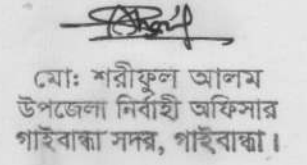 মো: শরীফুল আলম
উপজেলা নির্বাহী অফিসার
গাইবান্ধা সদর, গাইবান্ধা।